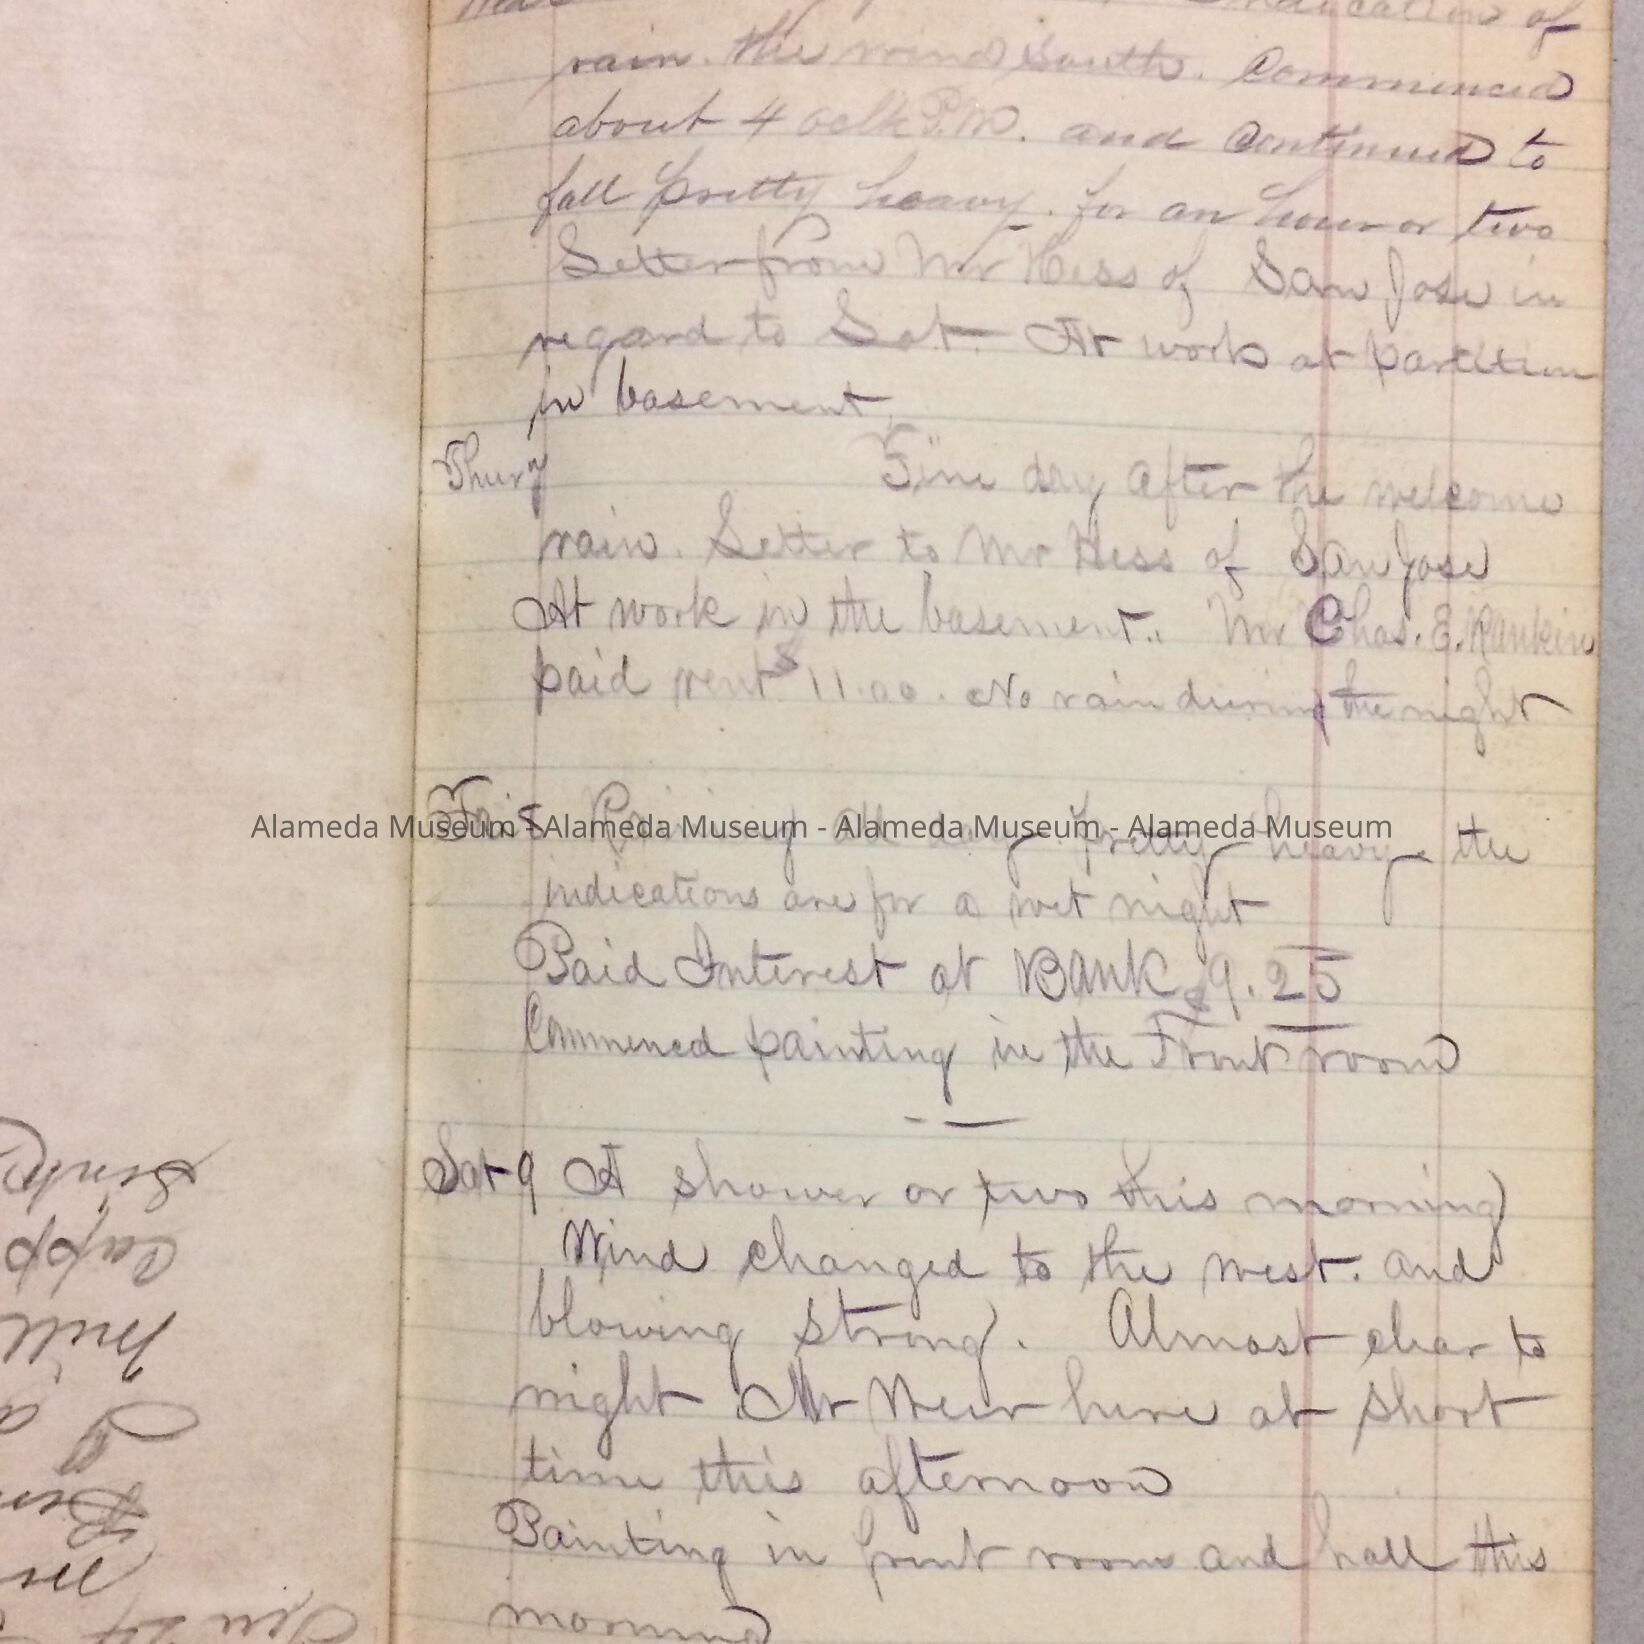 Indication of
rain. the wind South. Commenced
about 4 oclk P.M. and continued to
fall pretty heavy. for an hour or two
Letter from Mr Hess of San Jose in
regard to Lot. At work at partition
in basement.
Thur 7 Fine day after the welcome
rain. Letter to Mr Hess of San Jose
At work in the basement.. Mr Chas. E. Rankin
paid rent $11.00. No rain during the night
Fri 8 Raining all day. pretty heavy. the
Alameda Museum - Alameda Museum - Alameda Museum - Alameda Museum
indications are for a wet night
Paid Interest at Bank $9.25
Commenced painting in the Front room
Sat 9 A shower or two this morning
Wind changed to the west. and
blowing strong. Almost clear to
night Mr Weir here at short
time this afternoon
Painting in front room and hall this
morning